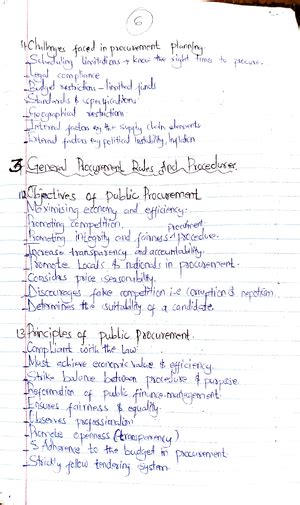 6
11. Challenges faced in procurement planning.
_Scheduling limitations → know the right times to procure.
_Legal compliance
_Budget restrictions - limited funds
_Standards & specifications
_Geographical restrictions
_Internal factors eg the supply chain elements
_External factors eg political instability, inflation
3. General Procurement Rules And Procedures.
12. Objectives of public Procurement
_Maximising economy and efficiency.
_Promoting competition.
_Promoting integrity and fairness procedure.
_Increase transparency and accountability.
_Promote Locals & nationals in procurement.
_Considers price reasonability.
_Discourages fake competition i.e corruption & nepotism.
_Determines the suitability of a candidate.
13. Principles of public Procurement.
_Compliant with the Law
_Must achieve economic value & efficiency.
_Strike balance between procedure & purpose.
_Reformation of public finance management.
_Ensures fairness & equality.
_Observes professionalism
_Promote openness (transparency)
_Adherence to the budget in procurement
_Strictly follow tendering system.